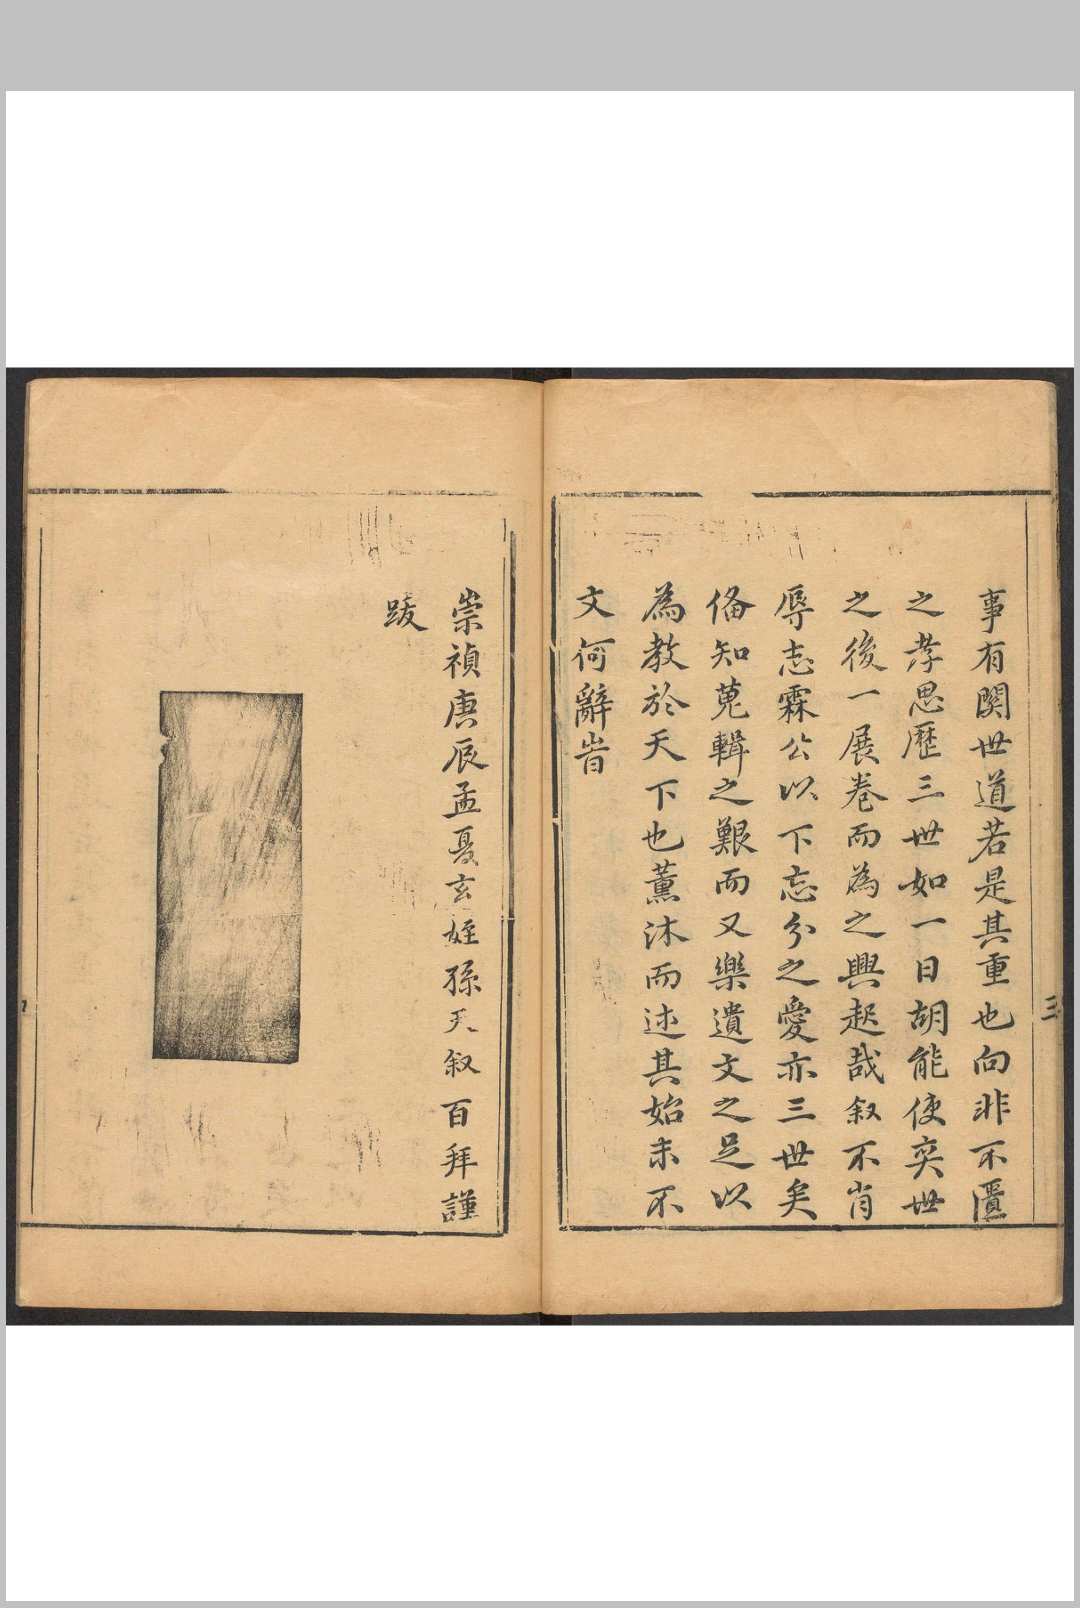 事有関世道若是其重也向非不匱
之孝思歷三世如一日胡能使奕世
之後一展卷而為之興起哉叙不肖
辱志霖公以下忘分之愛亦三世矣
俻知蒐輯之艱而又樂遺文之足以
為教於天下也薰沐而述其始末不
文何辭旹
崇禎庚辰孟夏玄姪孫天叙百拜謹
跋
三